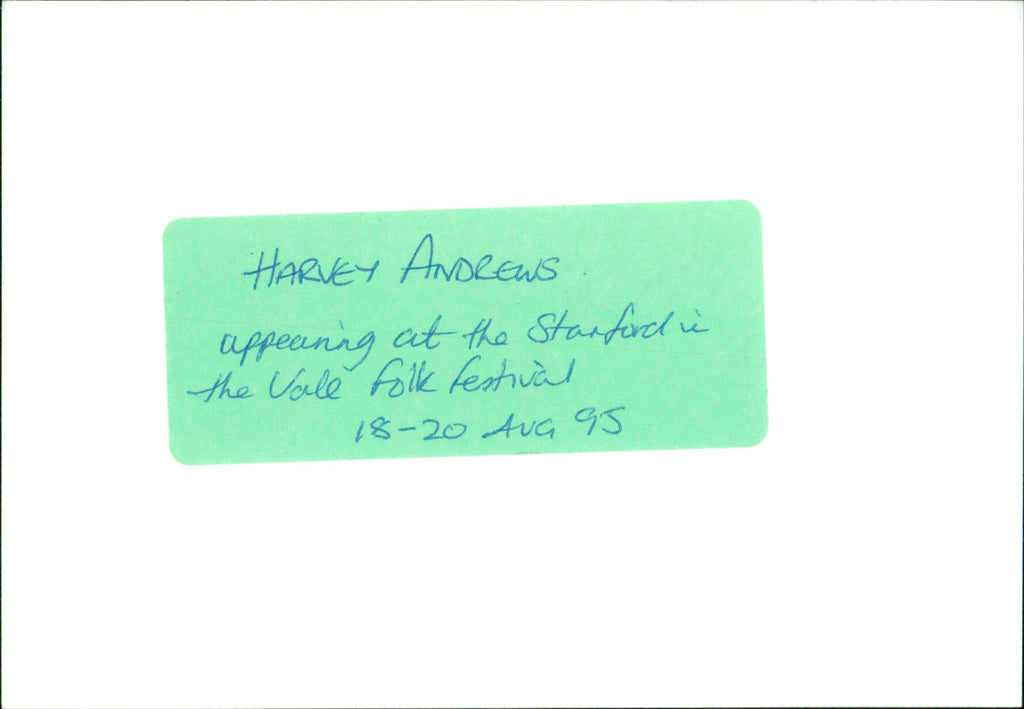 HARVEY ANDREWS
appearing at the Stanford in
the Vale folk festival
18-20 AUG 95